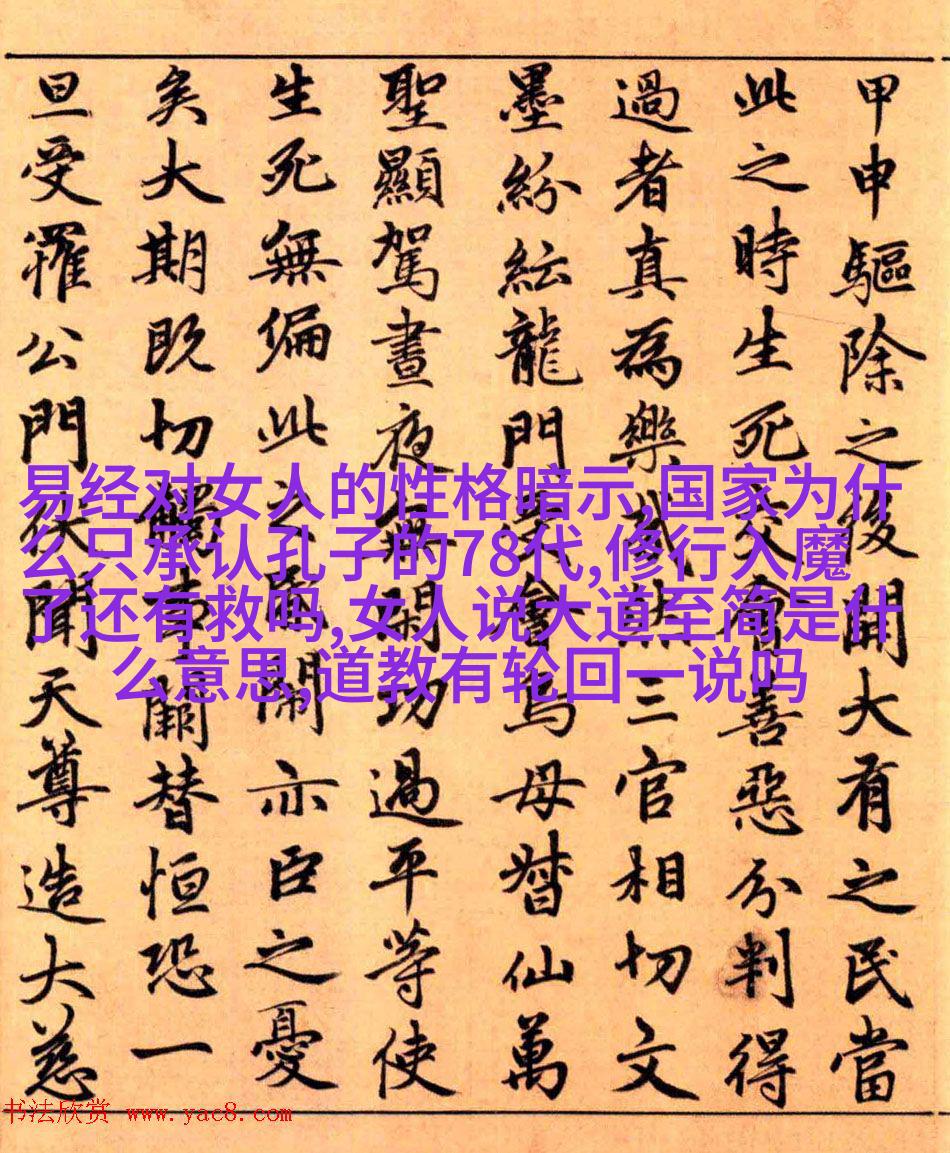 甲申驅除之後開大有之民當
此之時生死交會善惡分判得
過者真為樂哉然三官相切文
墨紛紜龍門受會鳥母督仙萬
聖顯駕晝夜無閑功過平等使
生死無偏此之鬧亦臣之憂
矣大期既切觸事闕替恒恐一
旦受罹公門伏聞天尊造大慈
易经对女人的性格暗示,国家为什
么只承认孔子的78代,修行入魔
了还有救吗,女人说大道至简是什
么意思,道教有轮回一说吗
书法欣赏 www.yac8.com